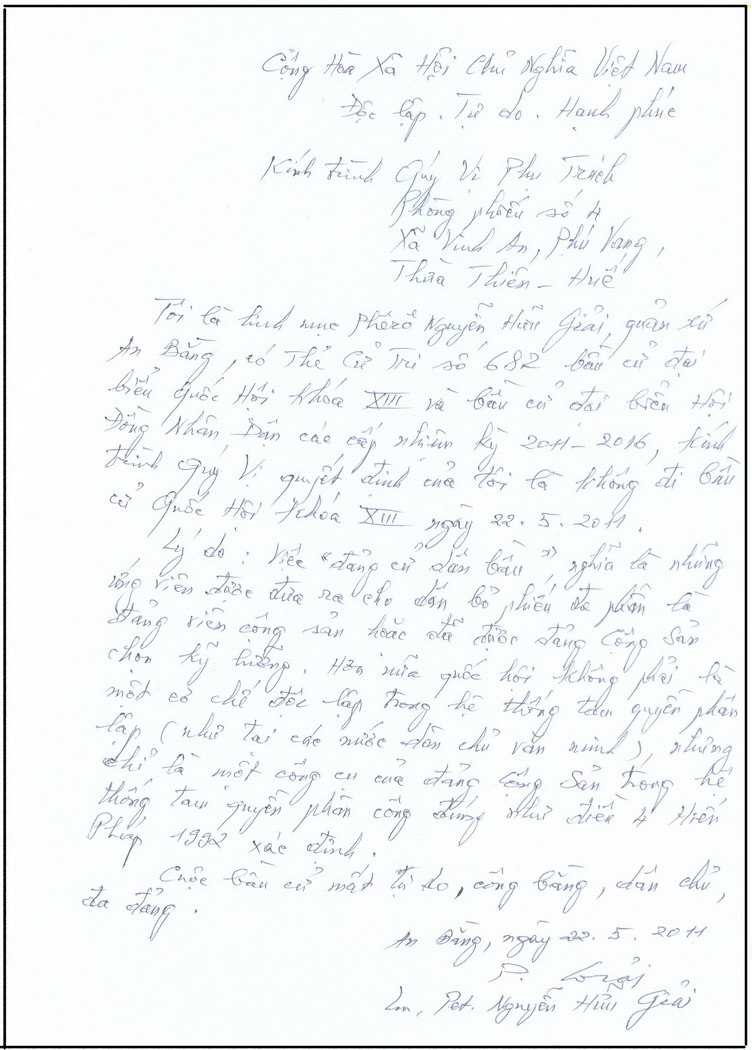 Cộng Hòa Xã Hội Chủ Nghĩa Việt Nam
Độc lập. Tự do. Hạnh phúc
Kính trình Quý Vị Phụ Trách
Phòng phiếu số 4
Xã Vinh An, Phú Vang,
Thừa Thiên - Huế
Tôi là linh mục Phêrô Nguyễn Hữu Giải, quản xứ
An Bằng, có Thẻ Cử Tri số 682 bầu cử đại
biểu Quốc Hội khóa XIII và bầu cử đại biểu Hội
Đồng Nhân Dân các cấp nhiệm kỳ 2011-2016, kính
trình Quý Vị quyết định của tôi là không đi bầu
cử Quốc Hội khóa XIII ngày 22.5.2011.
Lý do: Việc "đảng cử dân bầu", nghĩa là những
ứng viên được đưa ra cho dân bỏ phiếu đa phần là
đảng viên cộng sản hoặc đã được đảng Cộng Sản
chọn kỹ lưỡng. Hơn nữa quốc hội không phải là
một cơ chế độc lập trong hệ thống tam quyền phân
lập (như tại các nước dân chủ văn minh), nhưng
chỉ là một công cụ của đảng Cộng Sản trong hệ
thống tam quyền phân công đúng như điều 4 Hiến
Pháp 1992 xác định.
Cuộc bầu cử mất tự do, công bằng, dân chủ,
đa đảng.
An Bằng, ngày 22.5.2011
P. Giải
Lm. Pet. Nguyễn Hữu Giải